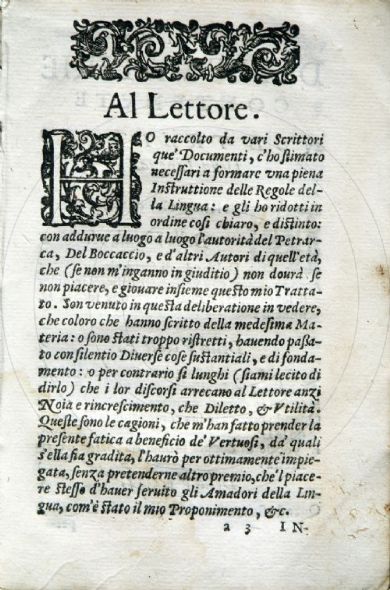 Al Lettore.
HO raccolto da vari Scrittori
que' Documenti, c'ho stimato
necessari a formare vna piena
Instruttione delle Regole del-
la Lingua: e gli ho ridotti in
ordine cosi chiaro, e distinto:
con addurue a luogo a luogo l'autorità del Petrar-
ca, Del Boccaccio, e d'altri Autori di quell'età,
che (se non m'inganno in giuditio) non dourà se
non piacere, e giouare insieme questo mio Tratta-
to. Son venuto in questa deliberatione in vedere,
che coloro che hanno scritto della medesima Ma-
teria: o sono stati troppo ristretti, hauendo passa-
to con silentio Diuerse cose sustantiali, e di fonda-
mento: o per contrario sì lunghi (siami lecito di
dirlo) che i lor discorsi arrecano al Lettore anzi
Noia e rincrescimento, che Diletto, & Vtilità.
Queste sono le cagioni, che m'han fatto prender la
presente fatica a beneficio de' Vertuosi, da' quali
s'ella fia gradita, l'haurò per ottimamente impie-
gata, senza pretenderne altro premio, che'l piace-
re stesso d'hauer seruito gli Amadori della Lin-
gua, com'è stato il mio Proponimento, &c.
a 3 IN-